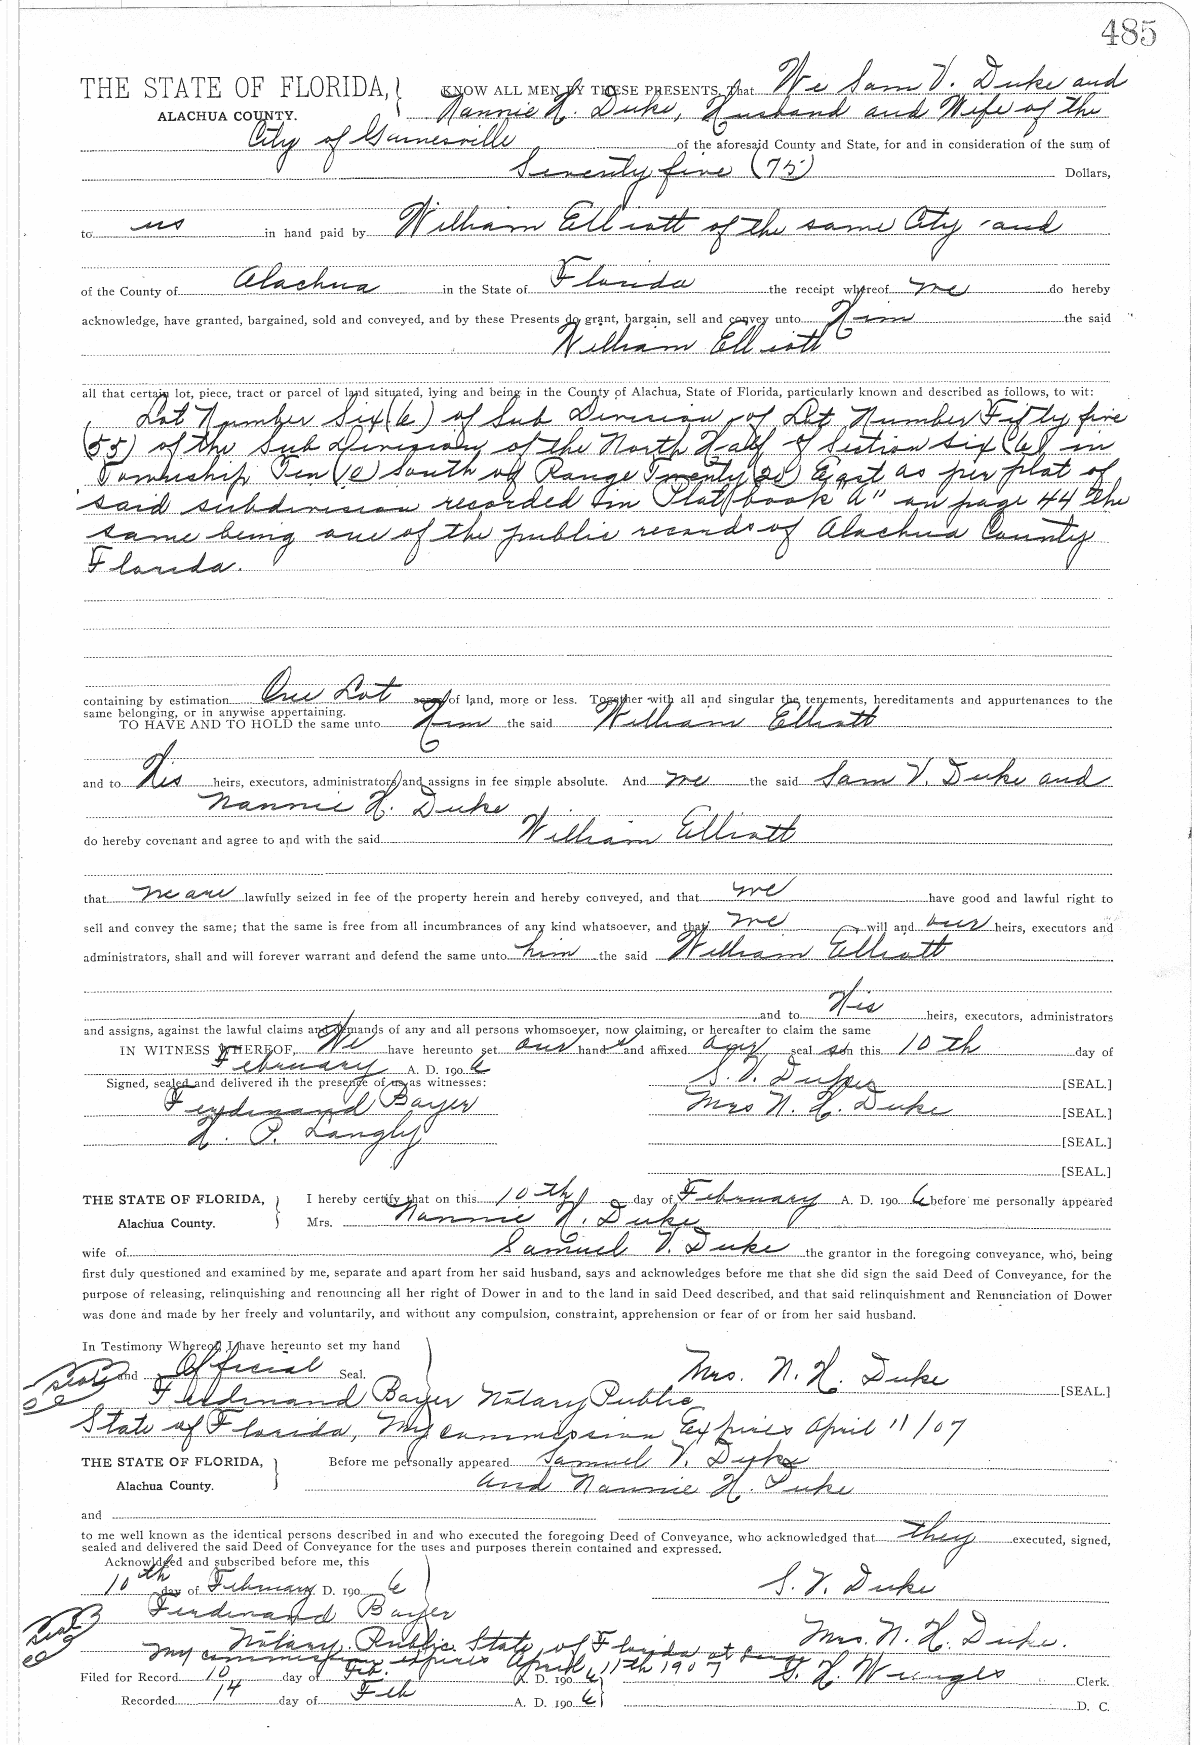 485
THE STATE OF FLORIDA, KNOW ALL MEN BY THESE PRESENTS, That We Sam V. Duke and
ALACHUA COUNTY. Nannie H. Duke, Husband and Wife of the
City of Gainesville of the aforesaid County and State, for and in consideration of the sum of
Seventy five (75) Dollars,
to us in hand paid by William Elliott of the same City and
of the County of Alachua in the State of Florida the receipt whereof we do hereby
acknowledge, have granted, bargained, sold and conveyed, and by these Presents do grant, bargain, sell and convey unto Him the said
William Elliott
all that certain lot, piece, tract or parcel of land situated, lying and being in the County of Alachua, State of Florida, particularly known and described as follows, to wit:
Lot Number Six (6) of Sub Division of Lot Number Fifty five
(55) of the Sub Division of the North Half of Section six (6) in
Township Ten (10) South of Range Twenty (20) East as per plat of
said subdivision recorded in Plat book "A" on page 44 the
same being one of the public records of Alachua County
Florida.
containing by estimation One Lot of land, more or less. Together with all and singular the tenements, hereditaments and appurtenances to the
same belonging, or in anywise appertaining.
TO HAVE AND TO HOLD the same unto Him the said William Elliott
and to His heirs, executors, administrators and assigns in fee simple absolute. And we the said Sam V. Duke and
Nannie H. Duke
do hereby covenant and agree to and with the said William Elliott
that we are lawfully seized in fee of the property herein and hereby conveyed, and that we have good and lawful right to
sell and convey the same; that the same is free from all incumbrances of any kind whatsoever, and that we will and our heirs, executors and
administrators, shall and will forever warrant and defend the same unto him the said William Elliott
and to His heirs, executors, administrators
and assigns, against the lawful claims and demands of any and all persons whomsoever, now claiming, or hereafter to claim the same
IN WITNESS WHEREOF, We have hereunto set our hands and affixed our seals on this 10th day of
February A. D. 190 6
Signed, sealed and delivered in the presence of us as witnesses: S. V. Duke [SEAL.]
Ferdinand Bayer Mrs N. H. Duke [SEAL.]
H. P. Langly [SEAL.]
[SEAL.]
THE STATE OF FLORIDA, I hereby certify that on this 10th day of February A. D. 190 6 before me personally appeared
Alachua County. Mrs. Nannie H. Duke
wife of Samuel V. Duke the grantor in the foregoing conveyance, who, being
first duly questioned and examined by me, separate and apart from her said husband, says and acknowledges before me that she did sign the said Deed of Conveyance, for the
purpose of releasing, relinquishing and renouncing all her right of Dower in and to the land in said Deed described, and that said relinquishment and Renunciation of Dower
was done and made by her freely and voluntarily, and without any compulsion, constraint, apprehension or fear of or from her said husband.
In Testimony Whereof, I have hereunto set my hand
seal and Official Seal. Mrs. N. H. Duke [SEAL.]
Ferdinand Bayer Notary Public
State of Florida, My commission Expires April 11/07
THE STATE OF FLORIDA, Before me personally appeared Samuel V. Duke
Alachua County. and Nannie H. Duke
and
to me well known as the identical persons described in and who executed the foregoing Deed of Conveyance, who acknowledged that they executed, signed,
sealed and delivered the said Deed of Conveyance for the uses and purposes therein contained and expressed.
Acknowldged and subscribed before me, this
10th day of February D. 190 6 S. V. Duke
Ferdinand Bayer
seal Notary Public State of Florida at Mrs. N. H. Duke.
My commission expires April 11th 1907
Filed for Record 10 day of Feb. A. D. 190 6 Clerk.
Recorded 14 day of Feb A. D. 190 6 D. C.